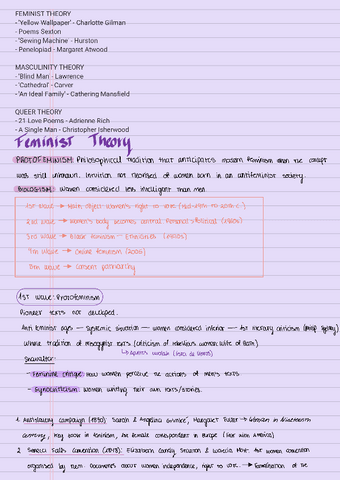 FEMINIST THEORY
- 'Yellow Wallpaper' - Charlotte Gilman
- Poems Sexton
- 'Sewing Machine' - Hurston
- Penelopiad - Margaret Atwood
MASCULINITY THEORY
- 'Blind Man' - Lawrence
- 'Cathedral' - Carver
- 'An Ideal Family' - Cathering Mansfield
QUEER THEORY
- 21 Love Poems - Adrienne Rich
- A Single Man - Christopher Isherwood
Feminist Theory
PROTOFEMINISM: Philosophical tradition that anticipates modern feminism when the concept
was still unknown. Intuition not theorised of women born in an antifeminist society.
BIOLOGISM: women considered less intelligent than men
1st wave → Main object women's right to vote
2nd wave → Women's body becomes central. Personal = Political (1960s)
3rd wave → Black feminism - Ethnicities
4th wave → Online feminism
5th wave → Consent patriarchy
1st wave: Protofeminism
Pioneer texts not developed.
Anti feminist ages — systemic situation — women considered inferior — for literary criticism
Whole tradition of misogynist texts (criticism of rebellious women
Showalter:
- Feminine critique: how women perceive the actions of men's texts.
- Gynocriticism: women writing their own texts/stories.
1. Antislavery campaign Sarah & Angelina Grimké, Margaret Fuller → Woman in Nineteenth
Century, key book in feminism, the female correspondent in Europe
2. Seneca Falls Convention Elizabeth Candy Stanton & Lucretia Mott. 1st women convention
organised by them. Documents about women independence, right to vote. → of the